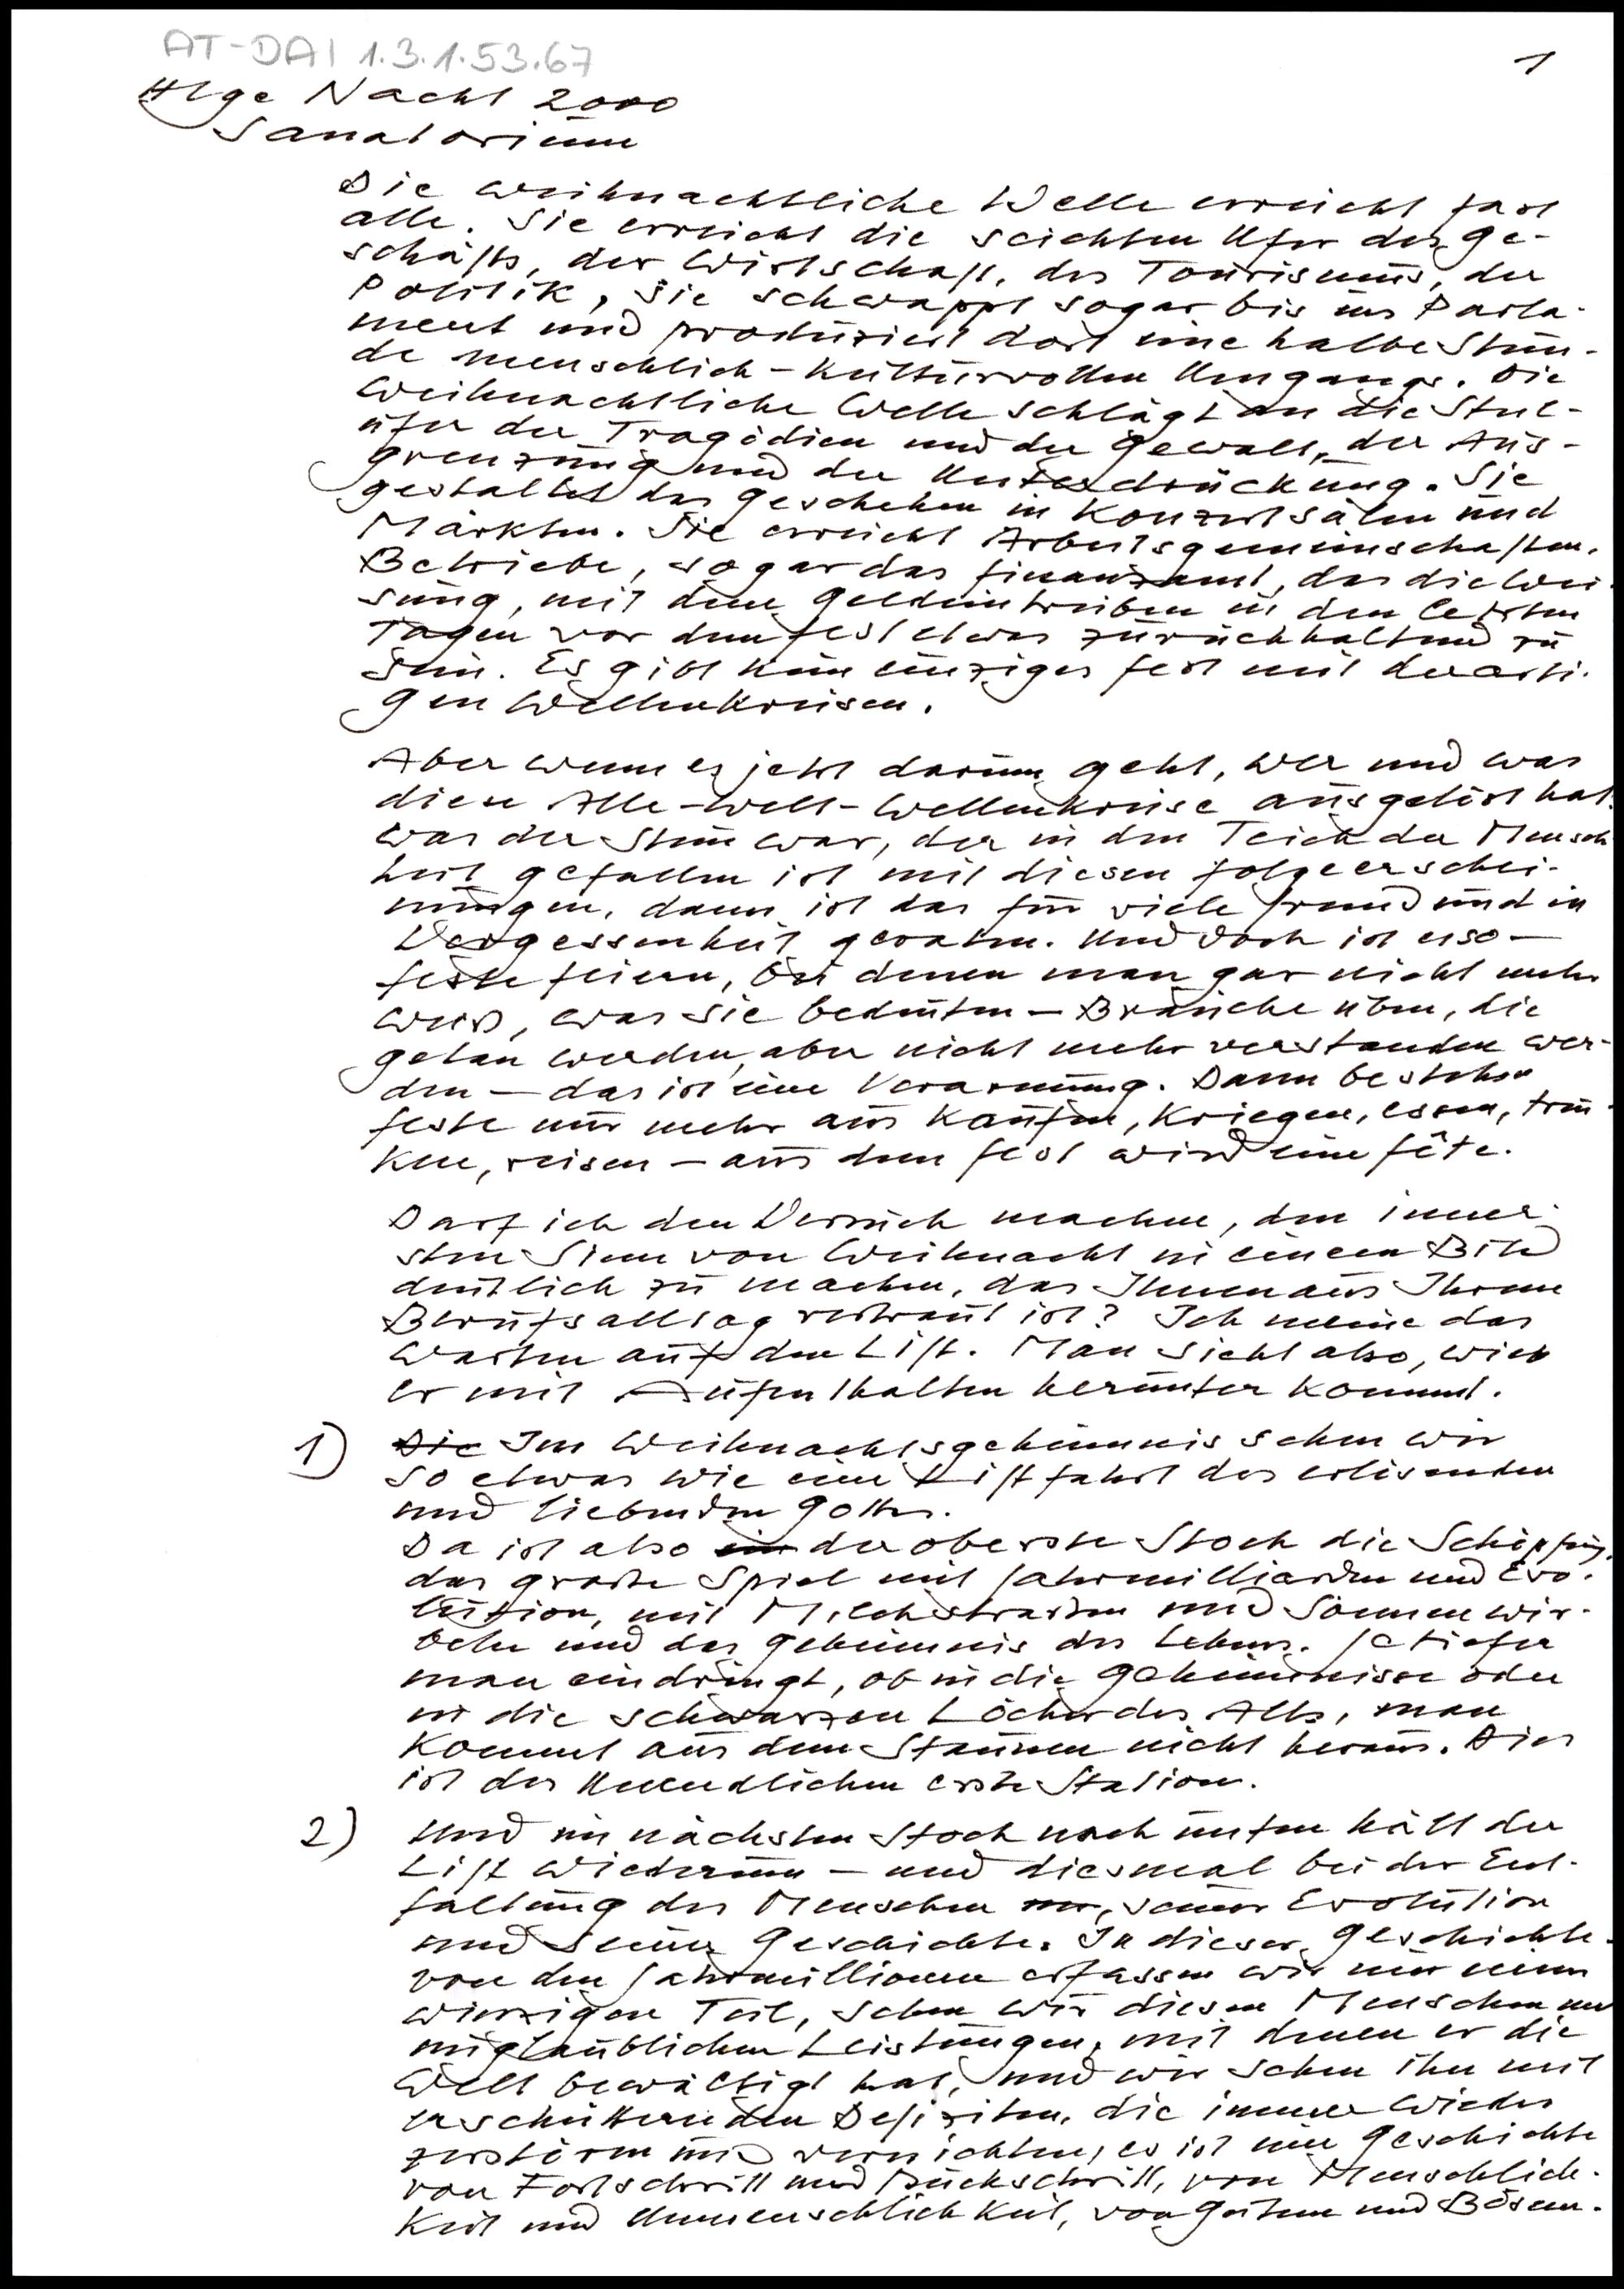 AT-DAI 1.3.1.53.67
1
Hlge Nacht 2000
Sanatorium
Die weihnachtliche Welle erreicht fast
alle. Sie erreicht die seichten Ufer des Ge-
schäfts, der Wirtschaft, des Tourismus, der
Politik, sie schwappt sogar bis ins Parla-
ment und produziert dort eine halbe Stun-
de menschlich-kulturvollen Umgangs. Die
weihnachtliche Welle schlägt an die Steil-
ufer der Tragödien und der Gewalt, der Aus-
grenzung und der Unterdrückung. Sie
gestaltet das Geschehen in Konzertsälen und
Märkten. Sie erreicht Arbeitsgemeinschaften,
Betriebe, sogar das Finanzamt, das die Wei-
sung, mit dem Geldeintreiben in den letzten
Tagen vor dem Fest etwas zurückhaltend zu
sein. Es gibt kein einziges Fest mit derarti-
gen Wellenkreisen.
Aber wenn es jetzt darum geht, wer und was
diese Alle-Welt-Wellenkreise ausgelöst hat,
was der Stein war, der in den Teich der Mensch
heit gefallen ist mit diesen Folgeerschei-
nungen, dann ist das für viele fremd und in
Vergessenheit geraten. Und doch ist es so –
Feste feiern, bei denen man gar nicht mehr
weiß, was sie bedeuten – Bräuche üben, die
getan werden, aber nicht mehr verstanden wer-
den – das ist eine Verarmung. Dann bestehen
Feste nur mehr aus Kaufen, Kriegen, essen, trin-
ken, reisen – aus dem Fest wird eine fête.
Darf ich den Versuch machen, den inner-
sten Sinn von Weihnacht in einem Bild
deutlich zu machen, das Ihnen aus Ihrem
Berufsalltag vertraut ist? Ich meine das
Warten auf den Lift. Man sieht also, wie
er mit Aufenthalten herunter kommt.
1) Die Im Weihnachtsgeheimnis sehen wir
so etwas wie eine Liftfahrt des erlösenden
und liebenden Gottes.
Da ist also ein der oberste Stock die Schöpfung,
das große Spiel mit Jahrmilliarden und Evo-
lution, mit Milchstraßen und Sonnenwir-
beln und das Geheimnis des Lebens. Je tiefer
man eindringt, ob in die Geheimnisse oder
in die schwarzen Löcher des Alls, man
kommt aus dem Staunen nicht heraus. Dies
ist des Unendlichen erste Station.
2) Und im nächsten Stock nach unten hält der
Lift wiederum – und diesmal bei der Ent-
faltung des Menschen, seiner Evolution
und seiner Geschichte. In dieser Geschichte
von den Jahrmillionen erfassen wir nur einen
winzigen Teil, sehen wir diesen Menschen mit
unglaublichen Leistungen, mit denen er die
Welt bewältigt hat, und wir sehen ihn mit
erschütternden Defiziten, die immer wieder
zerstören und vernichten, es ist eine Geschichte
von Fortschritt und Rückschritt, von Menschlich-
keit und Unmenschlichkeit, von Gutem und Bösem.